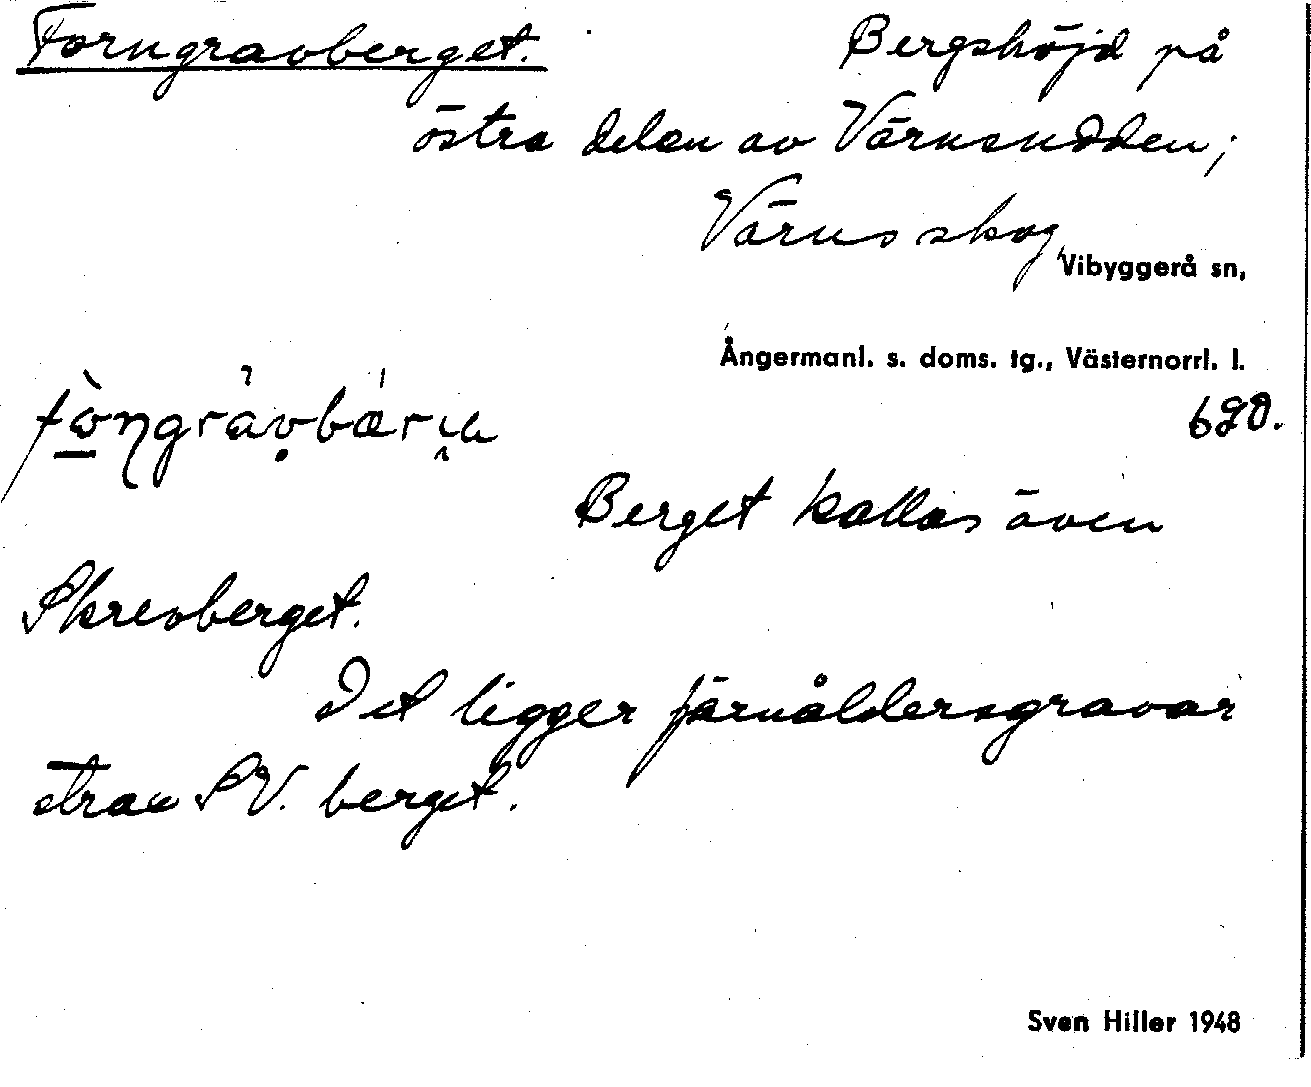 Forngravberget. Bergshöjd på
östra delen av Värnsudden;
Värns skog,
Vibyggerå sn,
Ångermanl. s. doms. tg., Västernorrl. l.
Berget kallas även
Skrevberget.
Det ligger järnåldersgravar
strax SV. berget.
Sven Hiller 1948